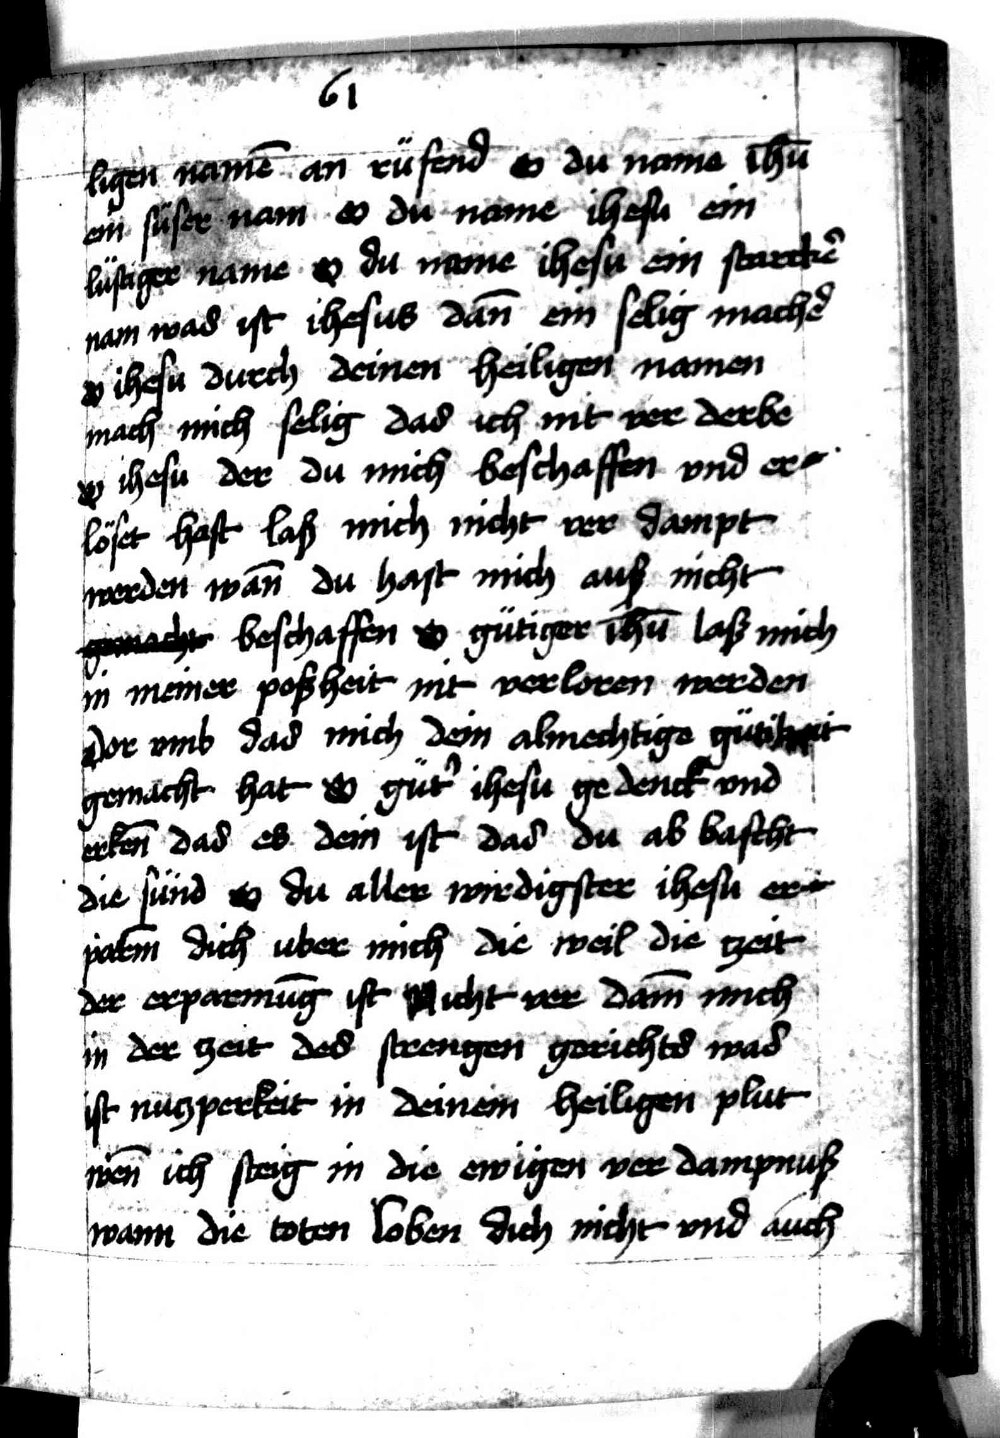 61
ligen namē an rüfend o du name ihū
ein süser nam o du name ihesu ein
lüstiger name o du name ihesu ein starckē
nam was ist ihesus dan̄ ein selig mached
o ihesu durch deinen heiligen namen
mach mich selig das ich nit ver derbe
o ihesu der du mich beschaffen vnd er-
löset hast laß mich nicht ver dampt
werden wan̄ du hast mich auß nicht
gemacht beschaffen o gütiger ihū laß mich
in meiner poßheit nit verloren werden
Dor vmb das mich dein almechtige gütikeit
gemacht hat o güt' ihesu gedenck vnd
erken̄ das es dein ist das du ab bascht
die sünd o du aller wirdigster ihesu er-
parm dich uber mich die weil die tzeit
der erparmūg ist Nicht ver dam̄ mich
in der tzeit des strengen gerichts was
ist nutzperkeit in deinem heiligen plut
wen̄ ich steig in die ewigen ver dampnuß
wann die toten loben dich nicht vnd auch